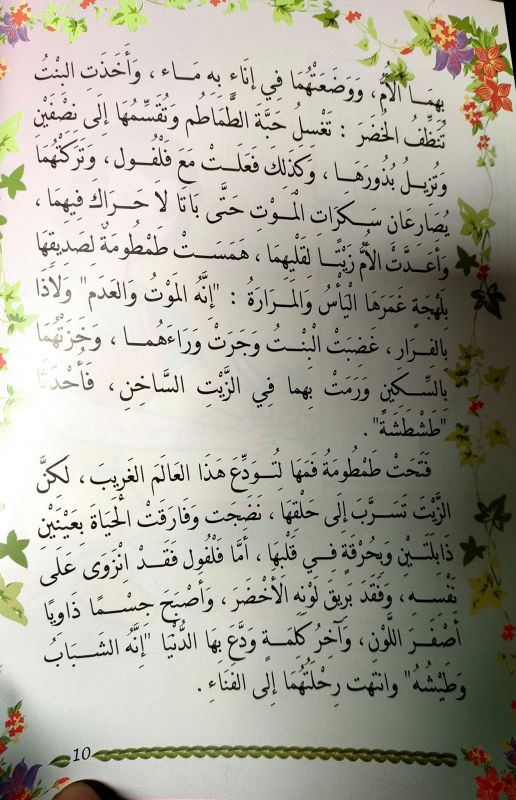 بِهِمَا الأُمُّ، وَوَضَعَتْهُمَا فِي إِنَاءٍ بِهِ مَاء، وَأَخَذَتِ البِنْتُ
تُنَظِّفُ الخُضَرَ : تَغْسِلُ حَبَّةَ الطَّمَاطُم وَتُقَسِّمُهَا إِلَى نِصْفَيْنِ
وَتُزِيلُ بُذُورَهَا، وَكَذَلِكَ فَعَلَتْ مَعَ فَلْفُول، وَتَرَكَتْهُمَا
يُصَارِعَان سَكَرَاتِ المَوْتِ حَتَّى بَاتَا لَا حَرَاكَ فِيهِمَا،
وَأَعَدَّتْ الأُمُّ زَيْتًا لِقَلْيِهِمَا، هَمَسَتْ طَمْطُومَةٌ لِصَدِيقِهَا
بِلَهْجَةٍ غَمَرَهَا اليَأْسُ وَالمَرَارَةُ : "إِنَّهُ المَوْتُ وَالعَدَم" وَلَاذَا
بِالفِرَار، غَضِبَتْ البِنْتُ وَجَرَتْ وَرَاءَهُمَا، وَخَزَتْهُمَا
بِالسِّكِّينِ وَرَمَتْ بِهِمَا فِي الزَّيْتِ السَّاخِنِ، فَأَحْدَثَا
"طَشْطَشَةً".
فَتَحَتْ طَمْطُومَةُ فَمَهَا لِتُوَدِّعَ هَذَا العَالَمَ الغَرِيبَ، لَكِنَّ
الزَّيْتَ تَسَرَّبَ إِلَى حَلْقِهَا، نَضِجَت وَفَارَقَتْ الحَيَاةَ بِعَيْنَيْنِ
ذَابِلَتَيْنِ وَبِحُرْقَةٍ فِي قَلْبِهَا، أَمَّا فَلْفُول فَقَدْ انْزَوَى عَلَى
نَفْسِهِ، وَفَقَدَ بَرِيقَ لَوْنِهِ الأَخْضَر، وَأَصْبَحَ جِسْمًا ذَاوِيًا
أَصْفَرَ اللَّوْنِ، وَآخِرُ كَلِمَةٍ وَدَّعَ بِهَا الدُّنْيَا "إِنَّهُ الشَّبَابُ
وَطَيْشُهُ" وانْتَهت رِحْلَتُهُمَا إِلَى الفَنَاءِ.
10